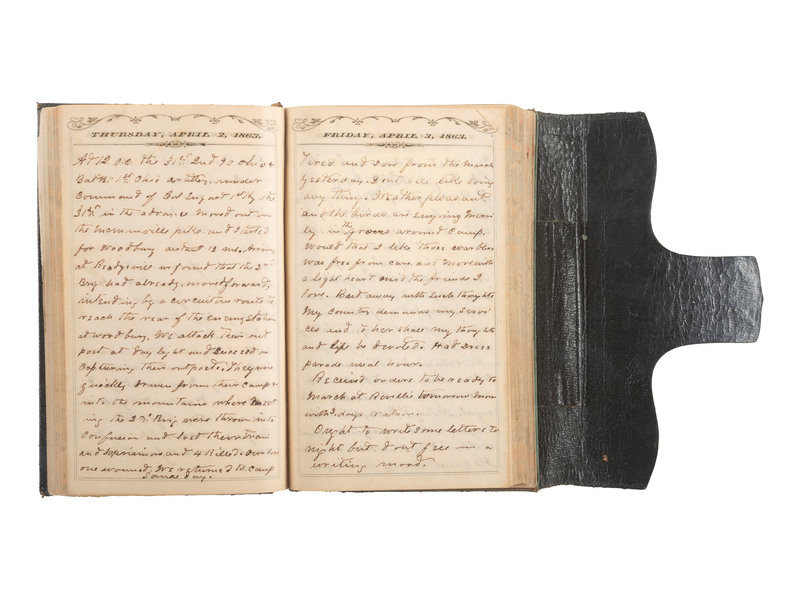 THURSDAY, APRIL 2, 1863.
At 12 o.c. the 31st 2nd 90 Ohio &
Bat B. 1st Ohio artillery, under
Command of Col Enyart 1st Ky. the
31st in the advance moved out on
the Murminsville pike and started
for Woodbury distant 13 ms. Arriving
at Readyville we found that the 2nd
Brig had already moved forward,
intending by a circuitous route to
reach the rear of the enemy station
at Woodbury. We attack their out
post at day light and succeed in
Capturing their outposts. They were
quickly driven from their Camp &
into the mountains where meet
ing the 2nd Brig were thrown into
Confusion and lost their train
and and 4 Killed. Our loss
one wounded. We returned to Camp
same day.
FRIDAY, APRIL 3, 1863.
Tired and sore from the March
yesterday. Dont feel like doing
any thing. Weather pleasant
and the birds are singing merri
ly in the groves around Camp.
Would that I like those warblers
was free from care and more with
a light heart amid the friends I
love. But away with such thoughts
My Country demands my servi
ces and to her shall my thoughts
and life be devoted. Had Dress
parade usual hour.
Received orders to be ready to
March at Reveille tomorrow morn
with 3 days rations.
Ought to write some letters to
night but dont feel in a
writing mood.